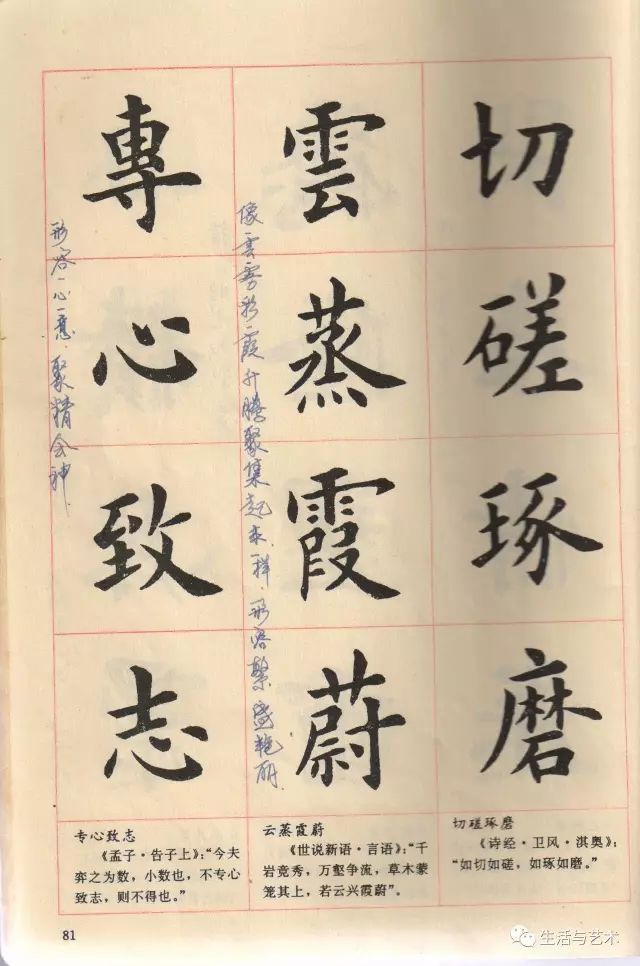 切磋琢磨
雲蒸霞蔚
像雲雾彩霞升腾聚集起来一样.形容繁盛艳丽.
專心致志
形容一心一意.聚精会神.
切磋琢磨
《诗经·卫风·淇奥》：
“如切如磋，如琢如磨。”
云蒸霞蔚
《世说新语·言语》：“千
岩竞秀，万壑争流，草木蒙
笼其上，若云兴霞蔚”。
专心致志
《孟子·告子上》：“今夫
弈之为数，小数也，不专心
致志，则不得也。”
81
生活与艺术